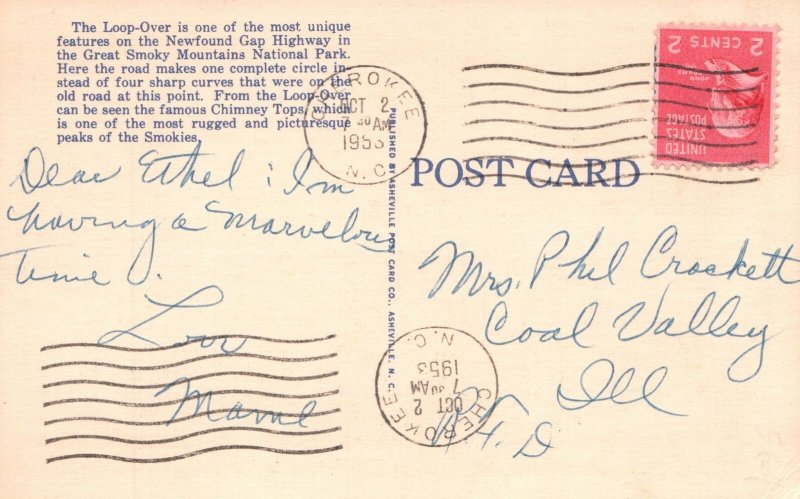 The Loop-Over is one of the most unique
features on the Newfound Gap Highway in
the Great Smoky Mountains National Park.
Here the road makes one complete circle in-
stead of four sharp curves that were on the
old road at this point. From the Loop-Over
can be seen the famous Chimney Tops, which
is one of the most rugged and picturesque
peaks of the Smokies.
CHEROKEE
OCT 2
7 30 AM
1953
N. C.
2 CENTS 2
JOHN ADAMS
UNITED
STATES
POSTAGE
POST CARD
PUBLISHED BY ASHEVILLE POST CARD CO., ASHEVILLE, N. C.
Dear Ethel : I'm
having a marvelous
time.
Love
Mrs. Phil Crockett
Coal Valley
Ill
R.F.D
CHEROKEE
OCT 2
7 30 AM
1953
N. C.